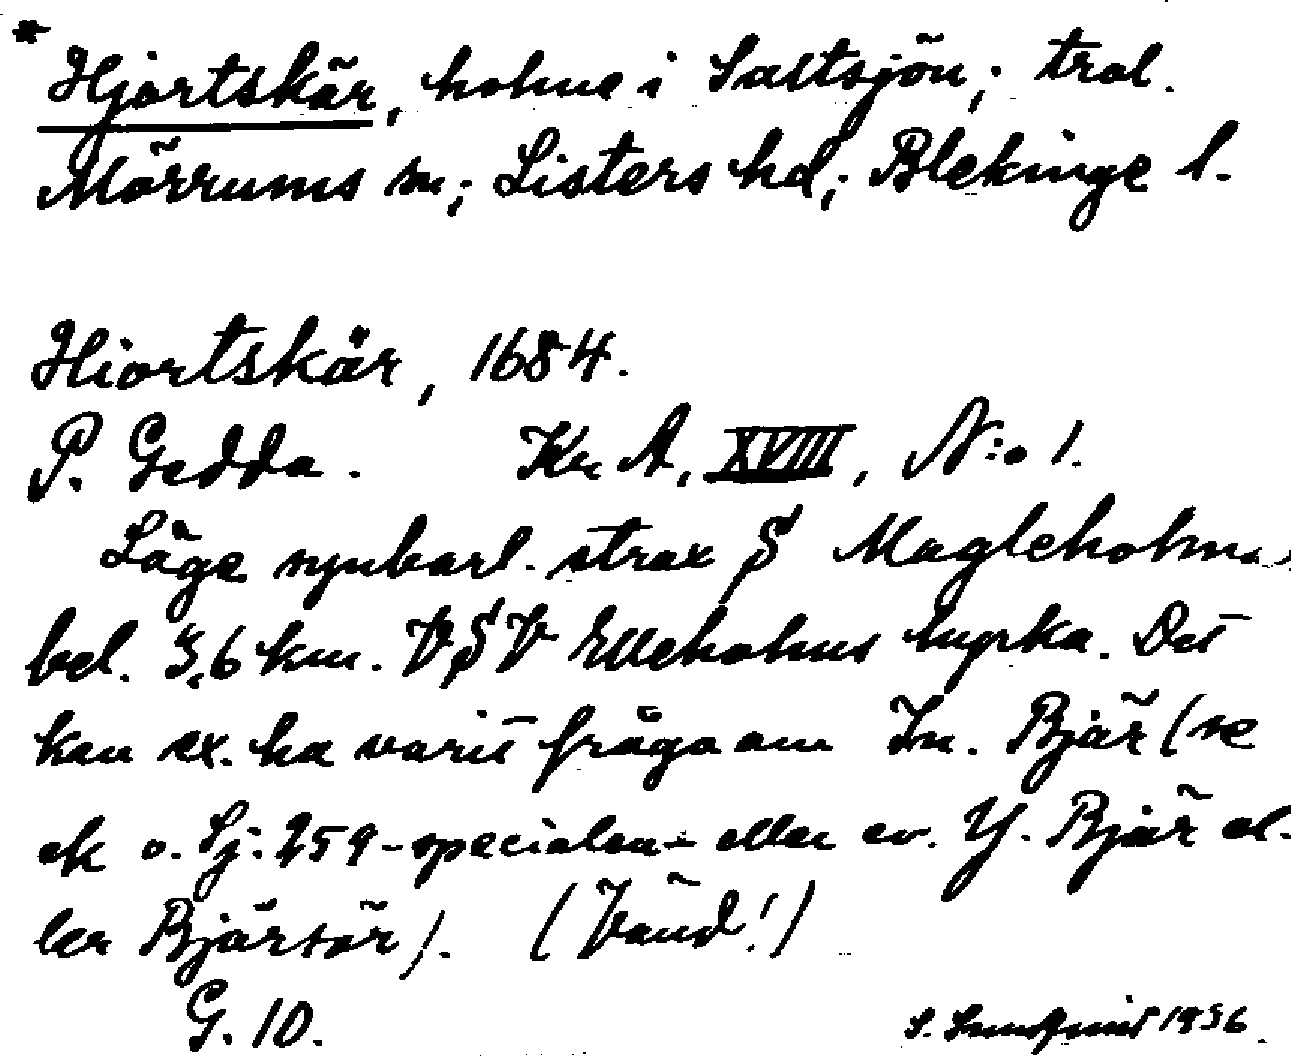 * Hjortskär, holme i Saltsjön; trol.
Mörrums sn; Listers hd; Blekinge l.
Hiortskär, 1684.
P. Gedda. Kr A, XVIII, N:o 1.
Läge synbarl. strax S Magleholmen
bel. 3,6 km. VSV Elleholms kyrka. Det
kan ex. ha varit fråga om In. Bjär (se
ek o. Sj. 259 - specialen - eller ev. Y. Bjär el-
ler Bjärsör). (Vänd!)
G. 10. S. Sundquist 1956.